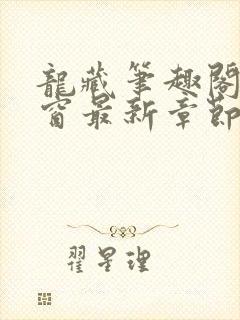 龍藏筆趣閣
窗最新章節
翟星理